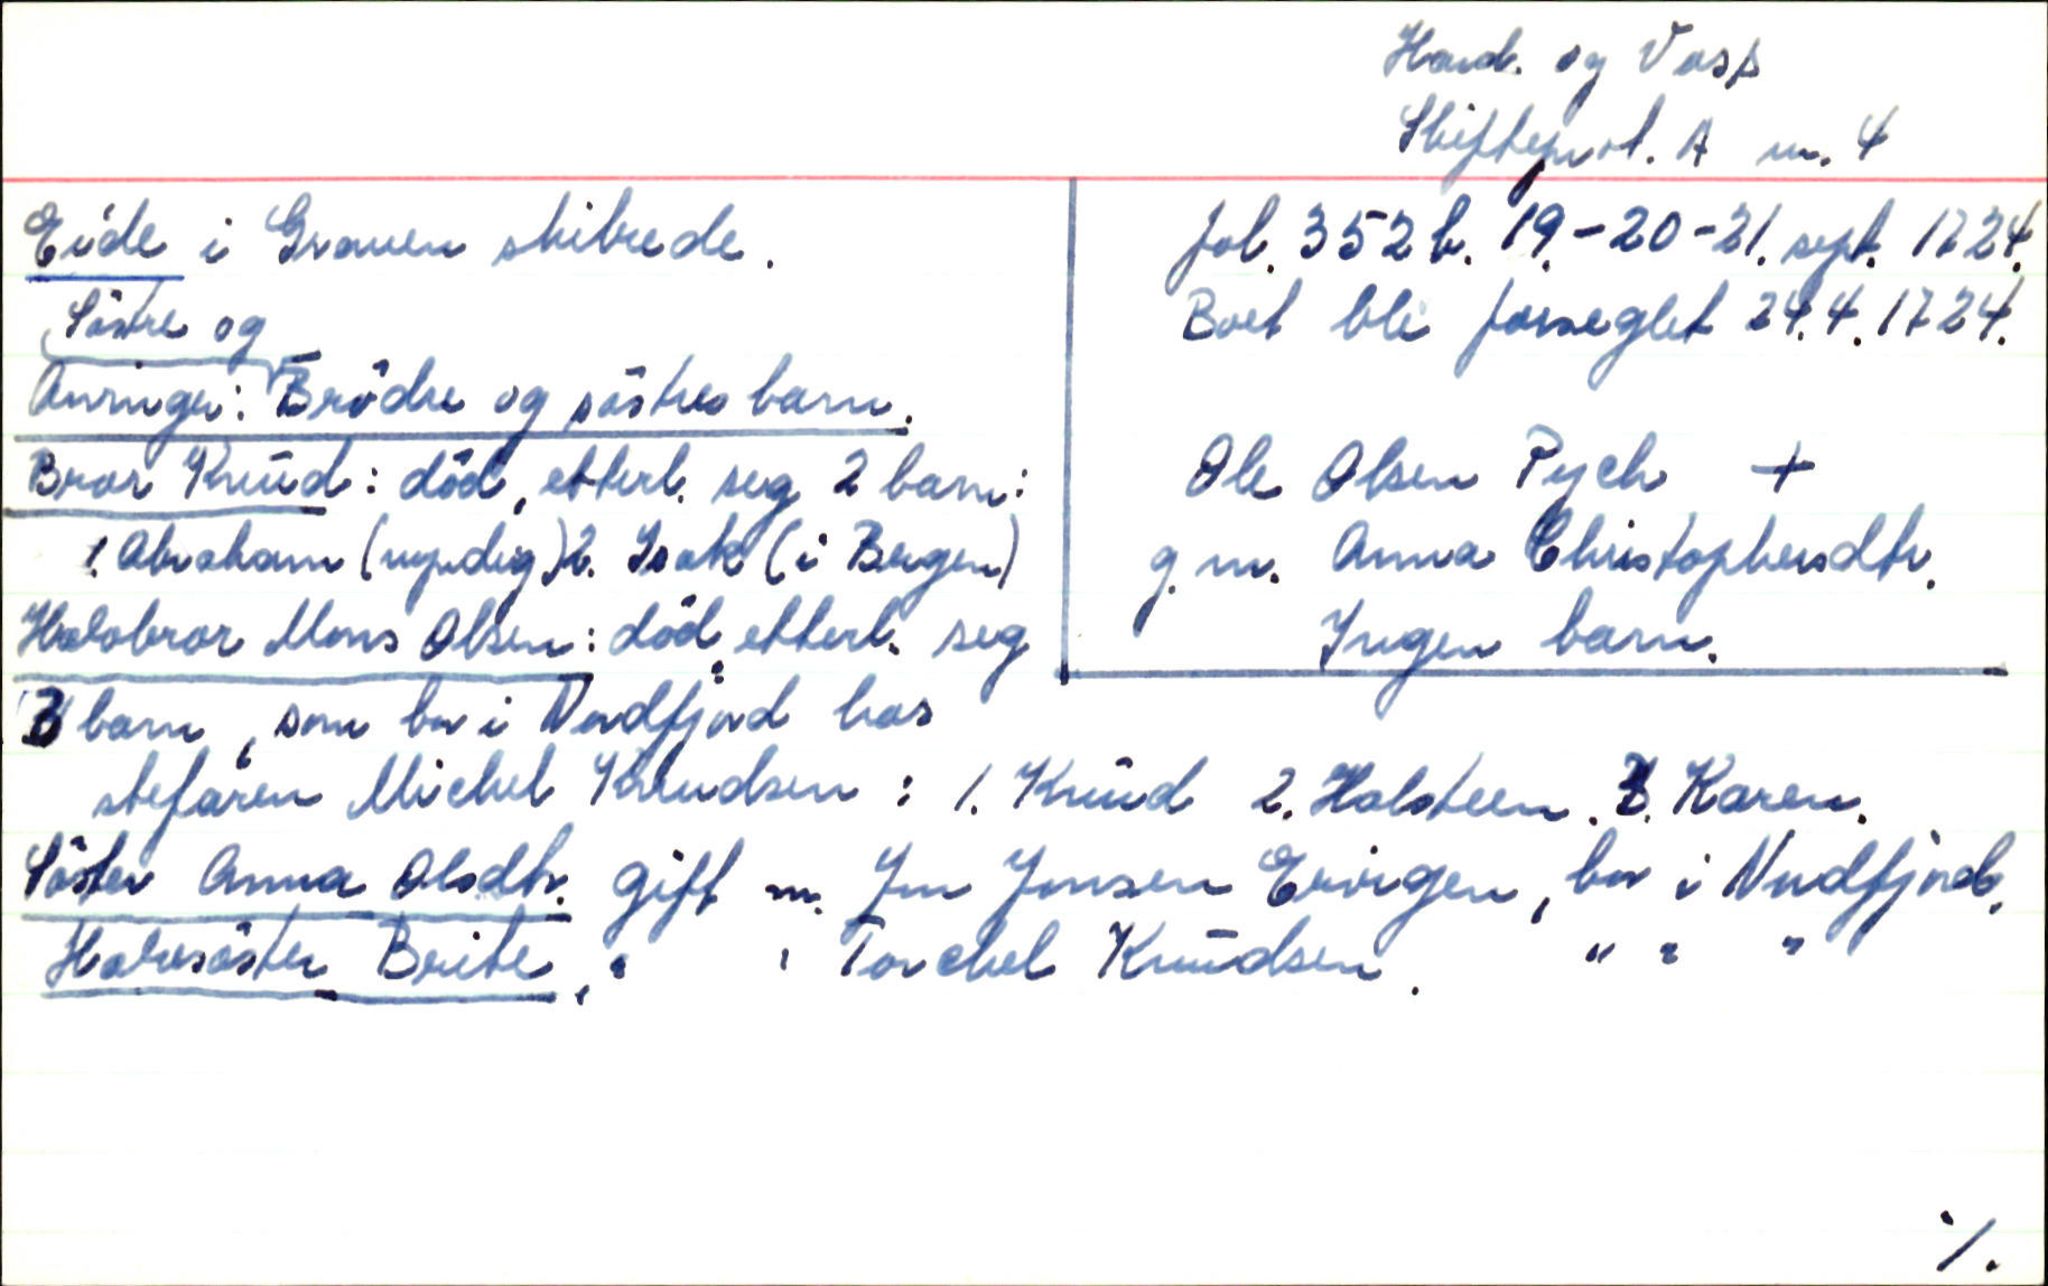 Hard. og Voss
Skifteprot. A nr. 4
Eide i Graven skibrede.
Söstre og
Arvinger: Brödre og söstres barn.
Bror Knud: död, etterl. seg 2 barn:
1. Abraham (myndig) 2. Isak (i Bergen)
Halvbror Mons Olsen: död, etterl. seg
3 barn, som bor i Nordfjord hos
stefaren Michel Knudsen: 1. Knud 2. Holsteen. 3. Karen.
Söster Anna Olsdtr. gift m. Jon Jonsen, bor i Nordfjord.
Halvsöster Brite, " " Torchel Knudsen. " " "
fol. 352 b. 19.-20-21. sept. 1724.
Boet ble forseglet 24.4.1724.
Ole Olsen Pych +
g. m. Anna Christophersdtr.
Ingen barn.
./.